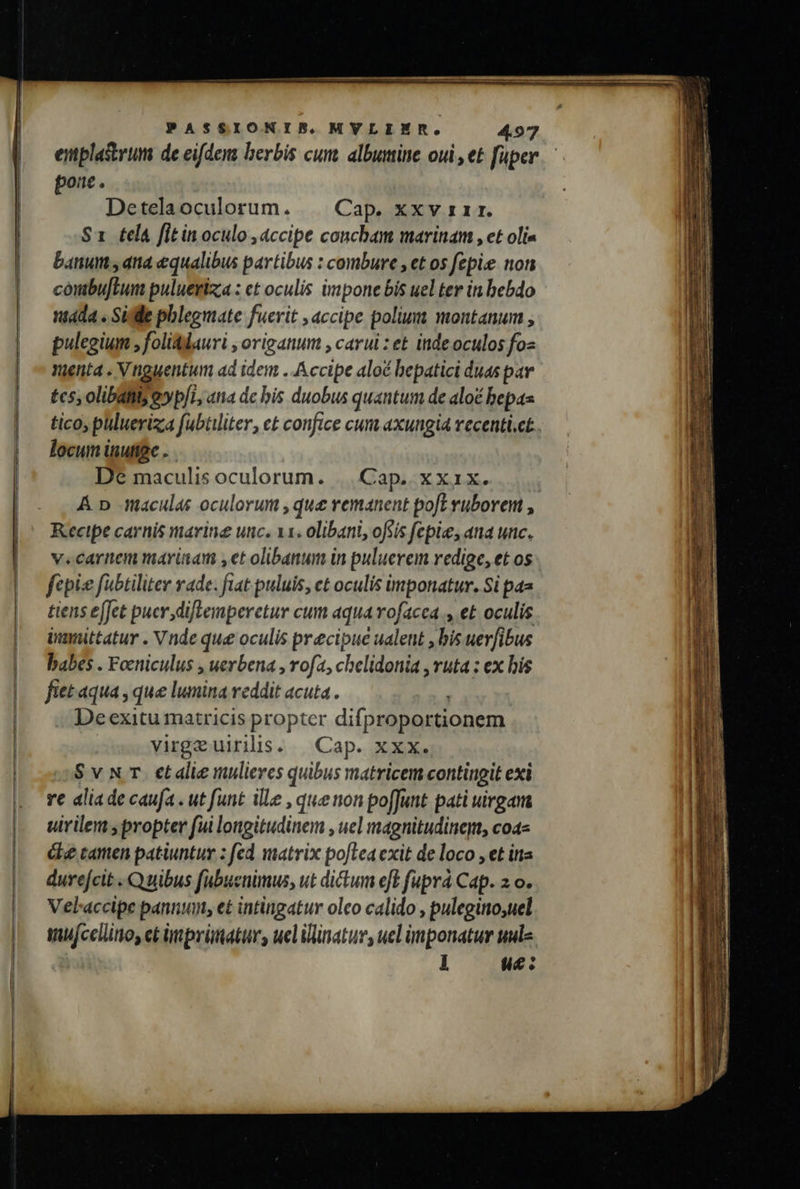 PASSIONIB. MVLIER. 497
emplaſtrum de eiſdem herbis cum albumine oui, et ſuper
pone.
De tela oculorum. Cap. xxviii.
Si tela ſit in oculo, accipe concham marinam, et oli⸗
banum, ana æqualibus partibus: combure, et os ſepiæ non
combuſtum pulueriza: et oculis impone bis uel ter in hebdo
mada. Si de phlegmate fuerit, accipe polium montanum,
pulegium, folia lauri, origanum, carui: et inde oculos fo⸗
menta. Vnguentum ad idem. Accipe aloë hepatici duas par
tes, olibani, gypſi, ana de his duobus quantum de aloë hepa⸗
tico, pulueriza ſubtiliter, et confice cum axungia recenti. et
locum inunge.
De maculis oculorum. Cap. xxix.
Ad maculas oculorum, quæ remanent poſt ruborem,
Recipe carnis marinæ unc. ii. olibani, oſsis ſepiæ, ana unc.
v. carnem marinam, et olibanum in puluerem redige, et os
ſepiæ ſubtiliter rade. fiat puluis, et oculis imponatur. Si pa⸗
tiens eſſet puer, diſtemperetur cum aqua roſacea, et oculis
immittatur. Vnde quæ oculis præcipue ualent, his uerſibus
habes. Fœniculus, uerbena, roſa, chelidonia, ruta: ex his
fiet aqua, quæ lumina reddit acuta.
De exitu matricis propter diſproportionem
virgæ uirilis. Cap. xxx.
Svnt et aliæ mulieres quibus matricem contingit exi
re alia de cauſa. ut ſunt illæ, quæ non poſſunt pati uirgam
uirilem, propter ſui longitudinem, uel magnitudinem, coa⸗
ctæ tamen patiuntur: ſed matrix poſtea exit de loco, et in⸗
dureſcit. Quibus ſubuenimus, ut dictum eſt ſuprà Cap. 20.
Vel accipe pannum, et intingatur oleo calido, pulegino, uel
muſcellino, et imprimatur, uel illinatur, uel imponatur uul⸗
l uæ: